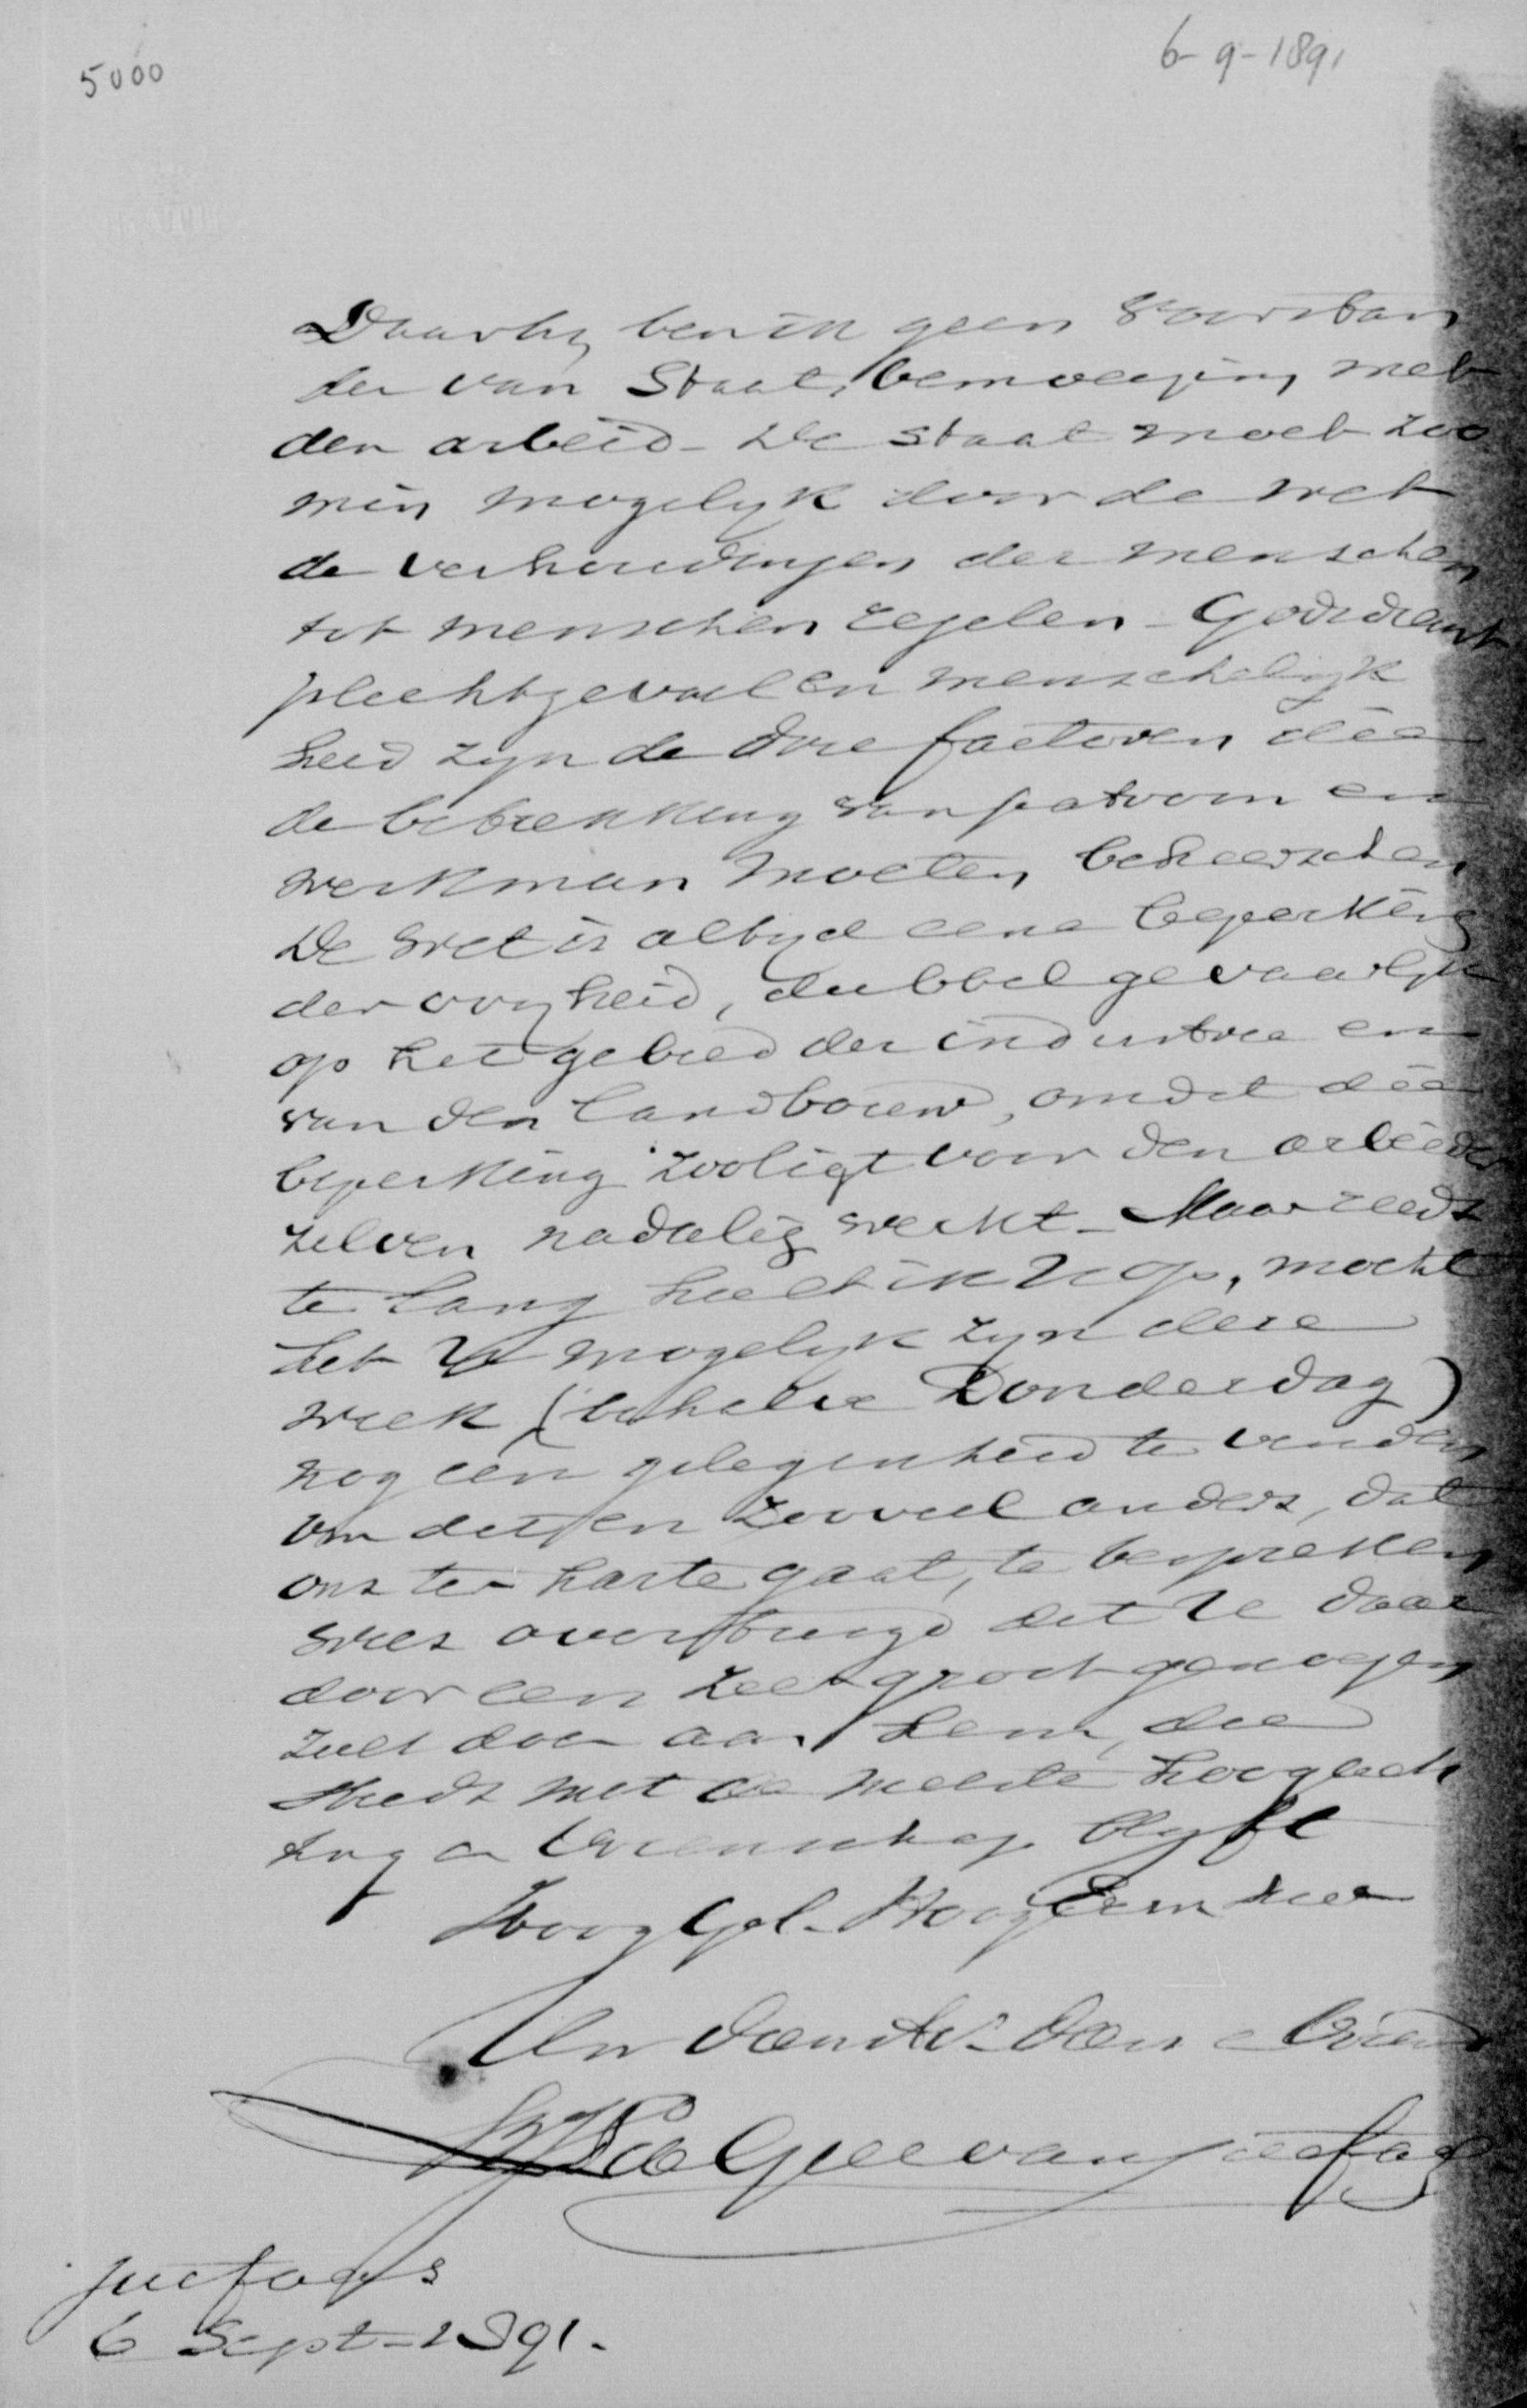 5000
6-9-1891
Daarby ben ik geen voorstan
der van Staats bemoeijing met
den arbeid - De Staat moet zoo
min mogelyk door de wet
de verhoudingen der menschen
tot menschen regelen - Godsdienst
plechtgevoel en menschelyk
heid zyn de drie factoren die
de betrekking van patroon en
werkman moeten beheerschen
De wet is altyd eene beperking
der vryheid, dubbel gevaarlyk
op het gebied der industrie en
van den landbouw, omdat die
beperking zooligt voor den arbeider
zelven nadelig werkt - Maar reeds
te lang hield ik U op, mocht
het U mogelyk zyn deze
week (behalve Donderdag)
nog een gelegenheid te vinden
om dit en zooveel anders, dat
ons ter harte gaat, te bespreken
wees overtuigd dat Ue daar
door een zeer groot genoegen
zult doen aan hem, die
steeds met de meeste hoogach
ting en vriendschap blyft
Hoog Gel. Hooggeleerde heer
Uw dienstv. dien en Vriend
de Geer van Jutfaas
Jutfaas
6 Sept - 1891.